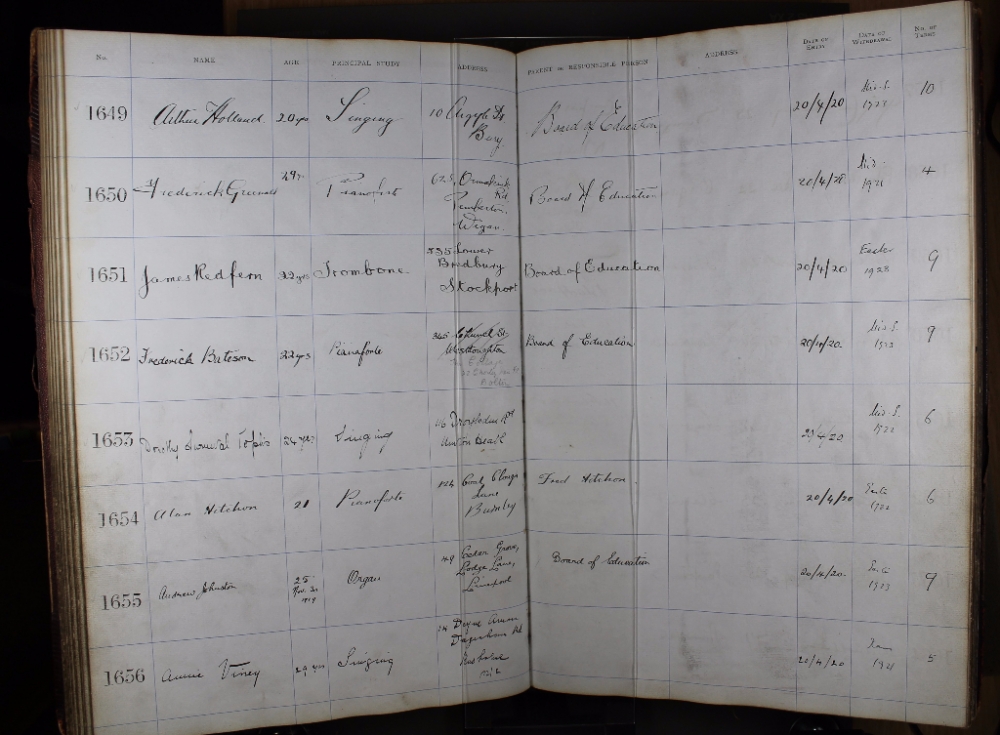 No. NAME AGE PRINCIPAL STUDY ADDRESS PARENT OR RESPONSIBLE PERSON ADDRESS DATE OF ENTRY DATE OF WITHDRAWAL NO. OF TERMS
1649 Arthur Holland 20 yrs Singing 10 Argyle St. Board of Education 20/4/20 Mid-S. 10
Bury
1650 Frederick 29 Pianoforte Ormskirk Board of Education 20/4/20 Mid- 4
Rd 1921
Pemberton,
Wigan.
1651 James Redfern 22 yrs Trombone. 535 Lower Board of Education 20/4/20 Easter 9
Bredbury 1923
Stockport
1652 Frederick Bateson 22 yrs Pianoforte 365 St. Board of Education 20/4/20. Mid-S. 9
Westhoughton 1923
Bolton
1653 Dorothy 24 yrs Singing Droylsden Rd 20/4/20 Mid-S. 6
Heath 1922
1654 Alan Hitchon 21 Pianoforte 124 Coal Clough Fred Hitchon. 20/4/20 6
Lane 1922
Burnley
1655 Andrew Johnston 25 Organ 49 Eden Grove, Board of Education 20/4/20. 9
Nov. Lodge Lane, 1923
1919 Liverpool
1656 Annie Viney 29 yrs Singing 14 20/4/20 5
Rusholme 1921